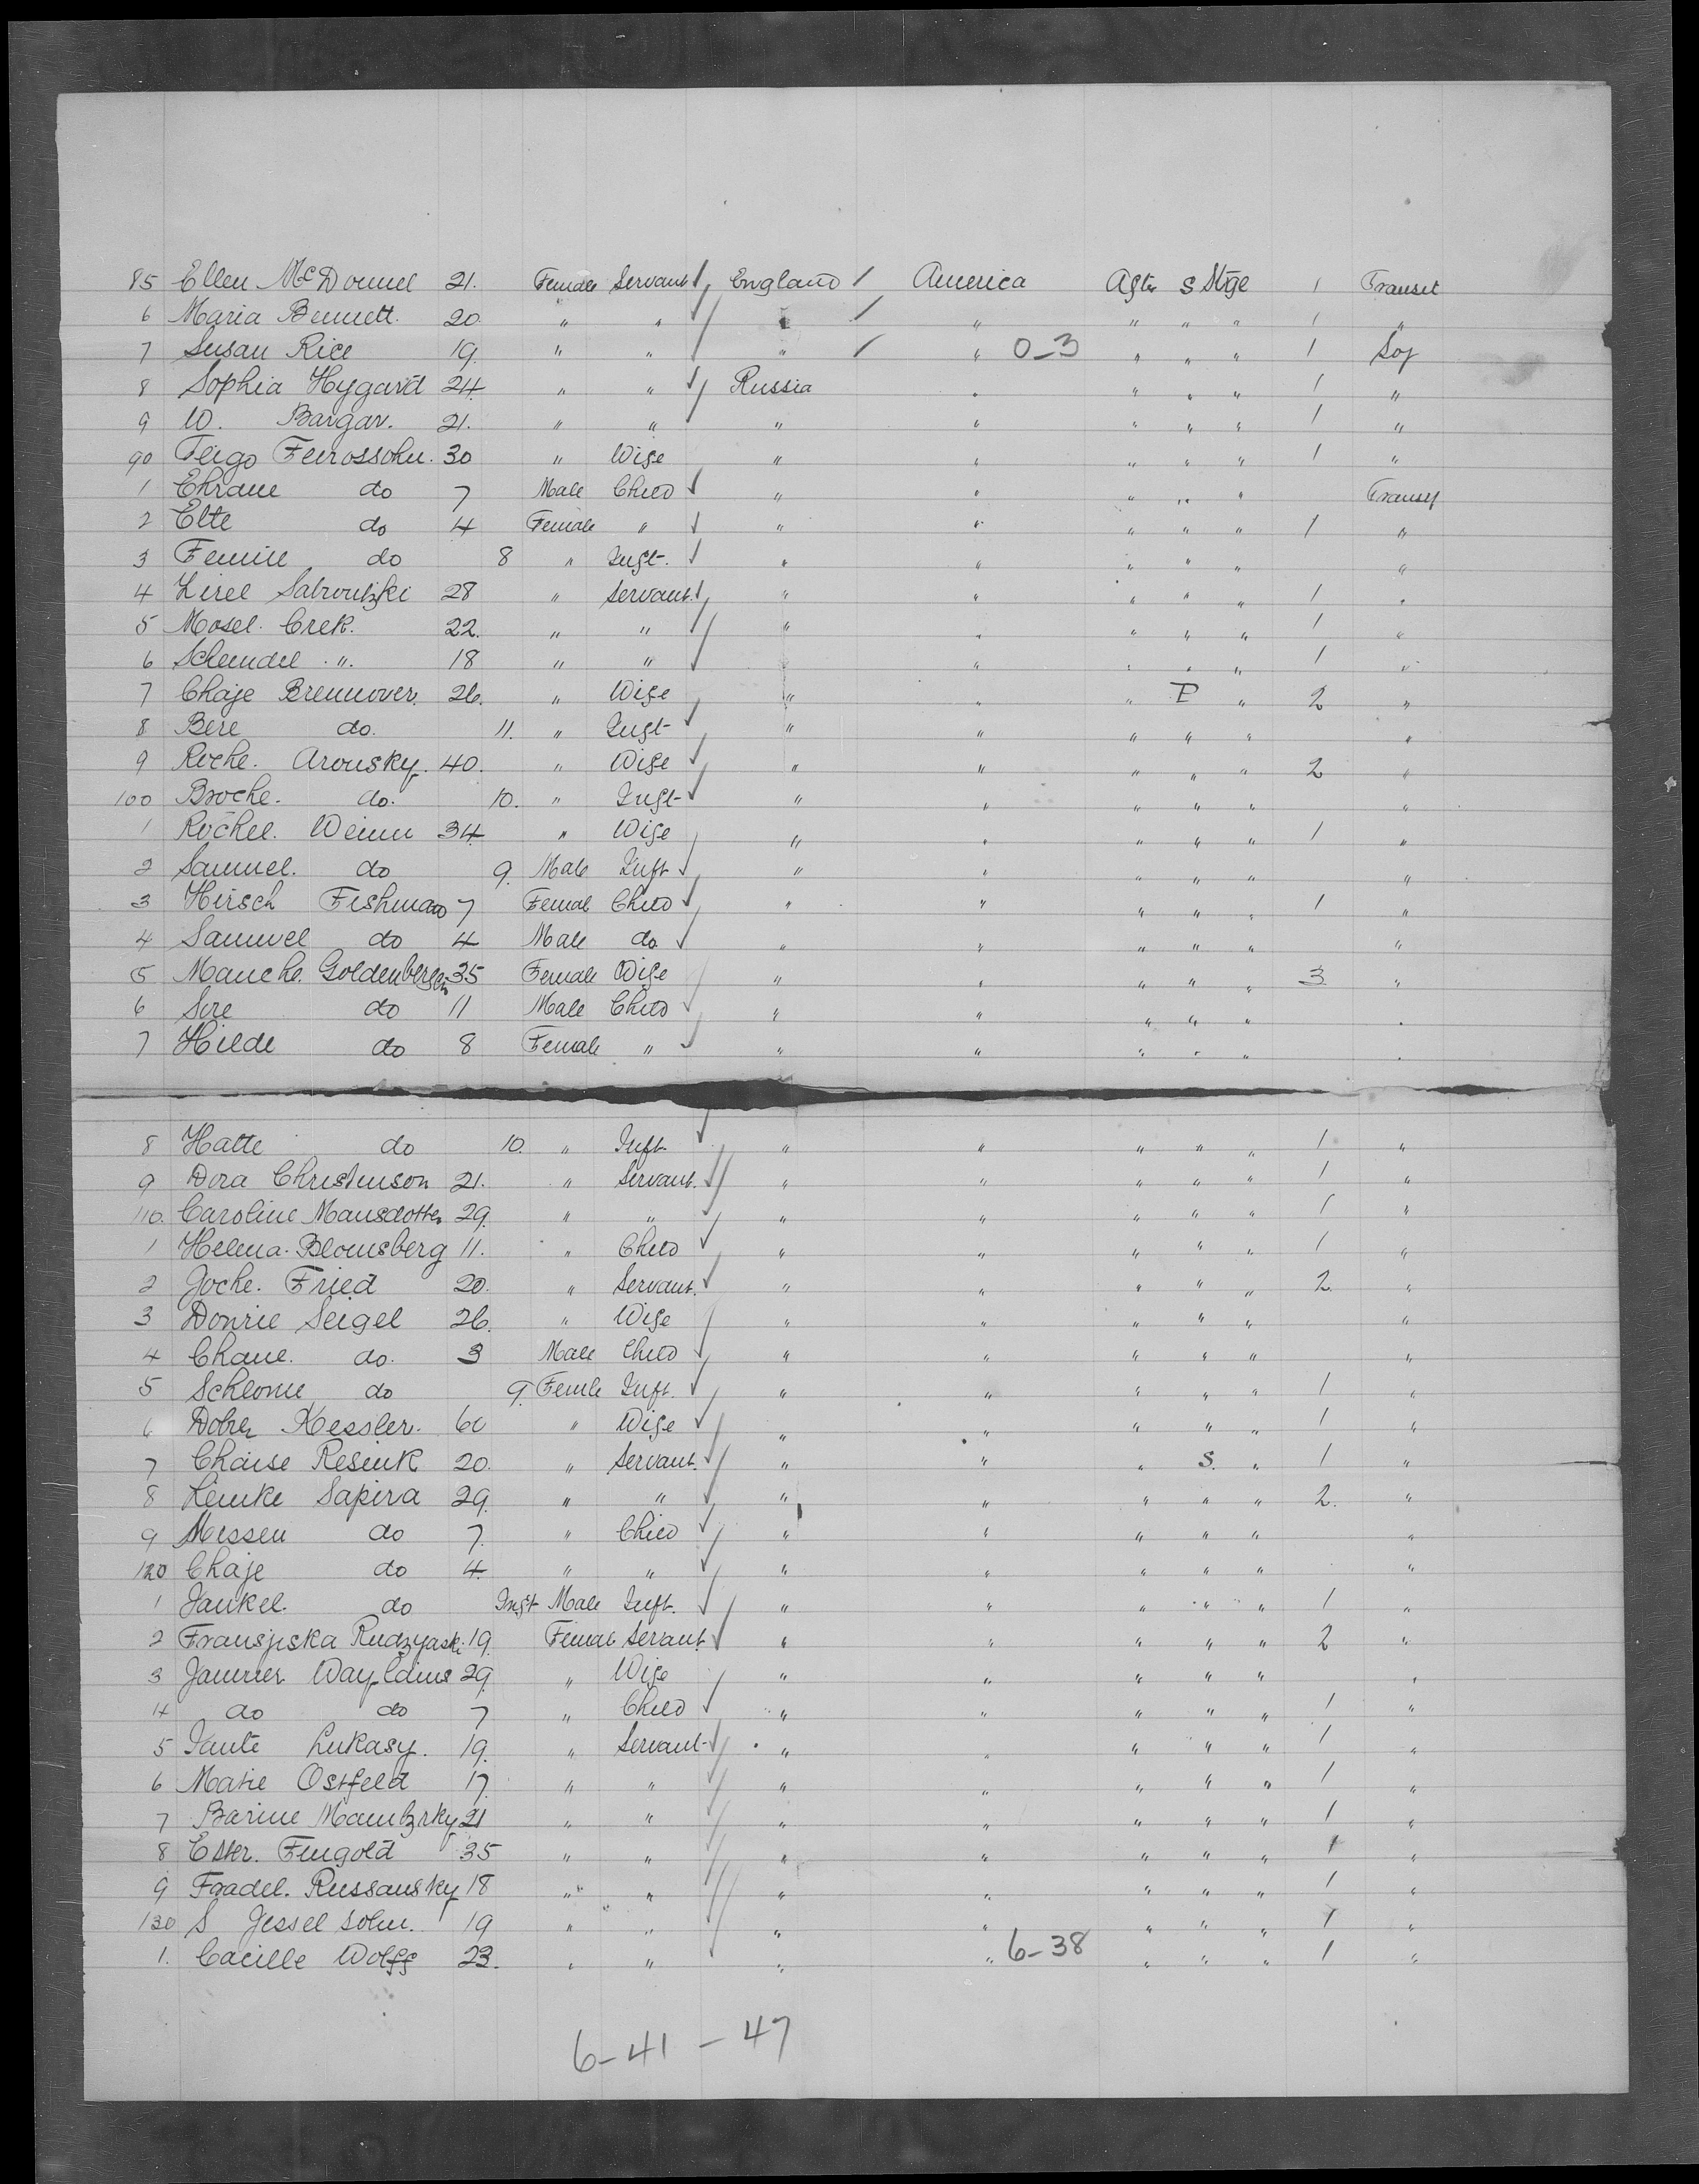 85 Ellen McDonnel 21. Female Servant England America Aftr S Stge 1 Transit
6 Maria Bennett. 20 " " " " " " " 1 "
7 Susan Rice 19. " " " " 0-3 " " " 1 Soj
8 Sophia Hygard 24. " " Russia " " " " 1 "
9 W. Bargar. 21. " " " " " " " 1 "
90 Feigo Feirossohn. 30 " Wife " " " " " 1 "
1 Ehrane do 7 Male Child " " " " " Transit
2 Elte do 4 Female " " " " " " 1 "
3 Femie do 8 " Inft. " " " " " "
4 Lirel Sabroutzki 28 " Servant. " " " " " 1 "
5 Mosel. Crek. 22. " " " " " " " 1 "
6 Scheindel " 18 " " " " " " " 1 "
7 Chaje Brennover. 26. " Wife " " " P " 2 "
8 Bere do. 11. " Inft " " " " " "
9 Roche. Arousky. 40. " Wife " " " " " 2 "
100 Broche. do. 10. " Inft " " " " " "
1 Rochel. Weinn 34. " Wife " " " " " 1 "
2 Samuel. do 9. Male Inft " " " " " "
3 Hirsch Fishman 7 Femal Child " " " " " 1 "
4 Samuel do 4 Male do " " " " " "
5 Manche. Goldenbergein 35 Female Wife " " " " " 3 "
6 Sore do 11 Male Child " " " " " "
7 Hilde do 8 Female " " " " " " "
8 Hatte do 10. " Inft. " " " " " 1 "
9 Dora Christenson 21. " Servant. " " " " " 1 "
110. Caroline Mansdotter 29. " " " " " " " 1 "
1 Helena. Blomsberg 11. " Child " " " " " 1 "
2 Joche. Fried 20. " Servant. " " " " " 2. "
3 Donrie Seigel 26. " Wife " " " " " "
4 Chane. do. 3 Male Child " " " " " "
5 Schlomie do 9. Femle Inft. " " " " " 1 "
6 Dobre Kessler. 60 " Wife " " " " " 1 "
7 Chaise Resink 20. " Servant. " " " S. " 1 "
8 Lemke Sapira 29. " " " " " " " 2. "
9 Messen do 7. " Child " " " " " "
120 Chaje do 4. " " " " " " " "
1 Jankel. do Inft Male Inft. " " " " " 1 "
2 Fransjiska Rudzyaski 19. Femal Servant " " " " " 2 "
3 Janner Wayldins 29. " Wife " " " " " "
4 do do 7 " Child " " " " " 1 "
5 Jante Lukasy. 19. " Servant " " " " " 1 "
6 Matie Ostfeld 17. " " " " " " " 1 "
7 Barine Mantzrky 21 " " " " " " " 1 "
8 Ester. Fingold 35 " " " " " " " 1 "
9 Fradel. Russansky 18 " " " " " " " 1 "
130 S Jessel sohn. 19 " " " " " " " 1 "
1. Cacille Wolff 23. " " " " 6-38 " " " 1 "
6-41-47